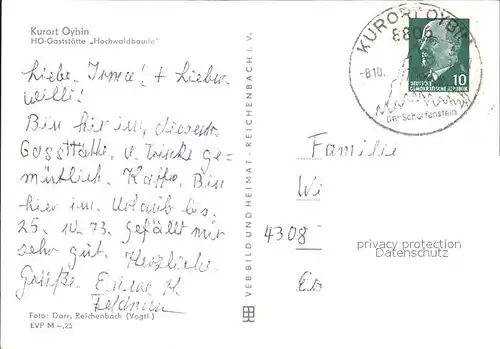 Kurort Oybin
HO-Gaststätte „Hochwaldbaude"
Liebe Irma! + lieber
Willi!
Bin hier in dieser
Gasstätte u. trinke ge-
mütlich Kaffe. Bin
hier im Urlaub bis
25. 10. 73. gefällt mir
sehr gut. Herzliche
Grüße.
Foto: Darr, Reichenbach (Vogtl.)
EVP M –,25
VEB BILD UND HEIMAT · REICHENBACH I. V.
KURORT OYBIN
8806
-8.10.
Der Scharfenstein
10
DEUTSCHE
DEMOKRATISCHE REPUBLIK
Familie
Wi
4308
privacy protection
Datenschutz